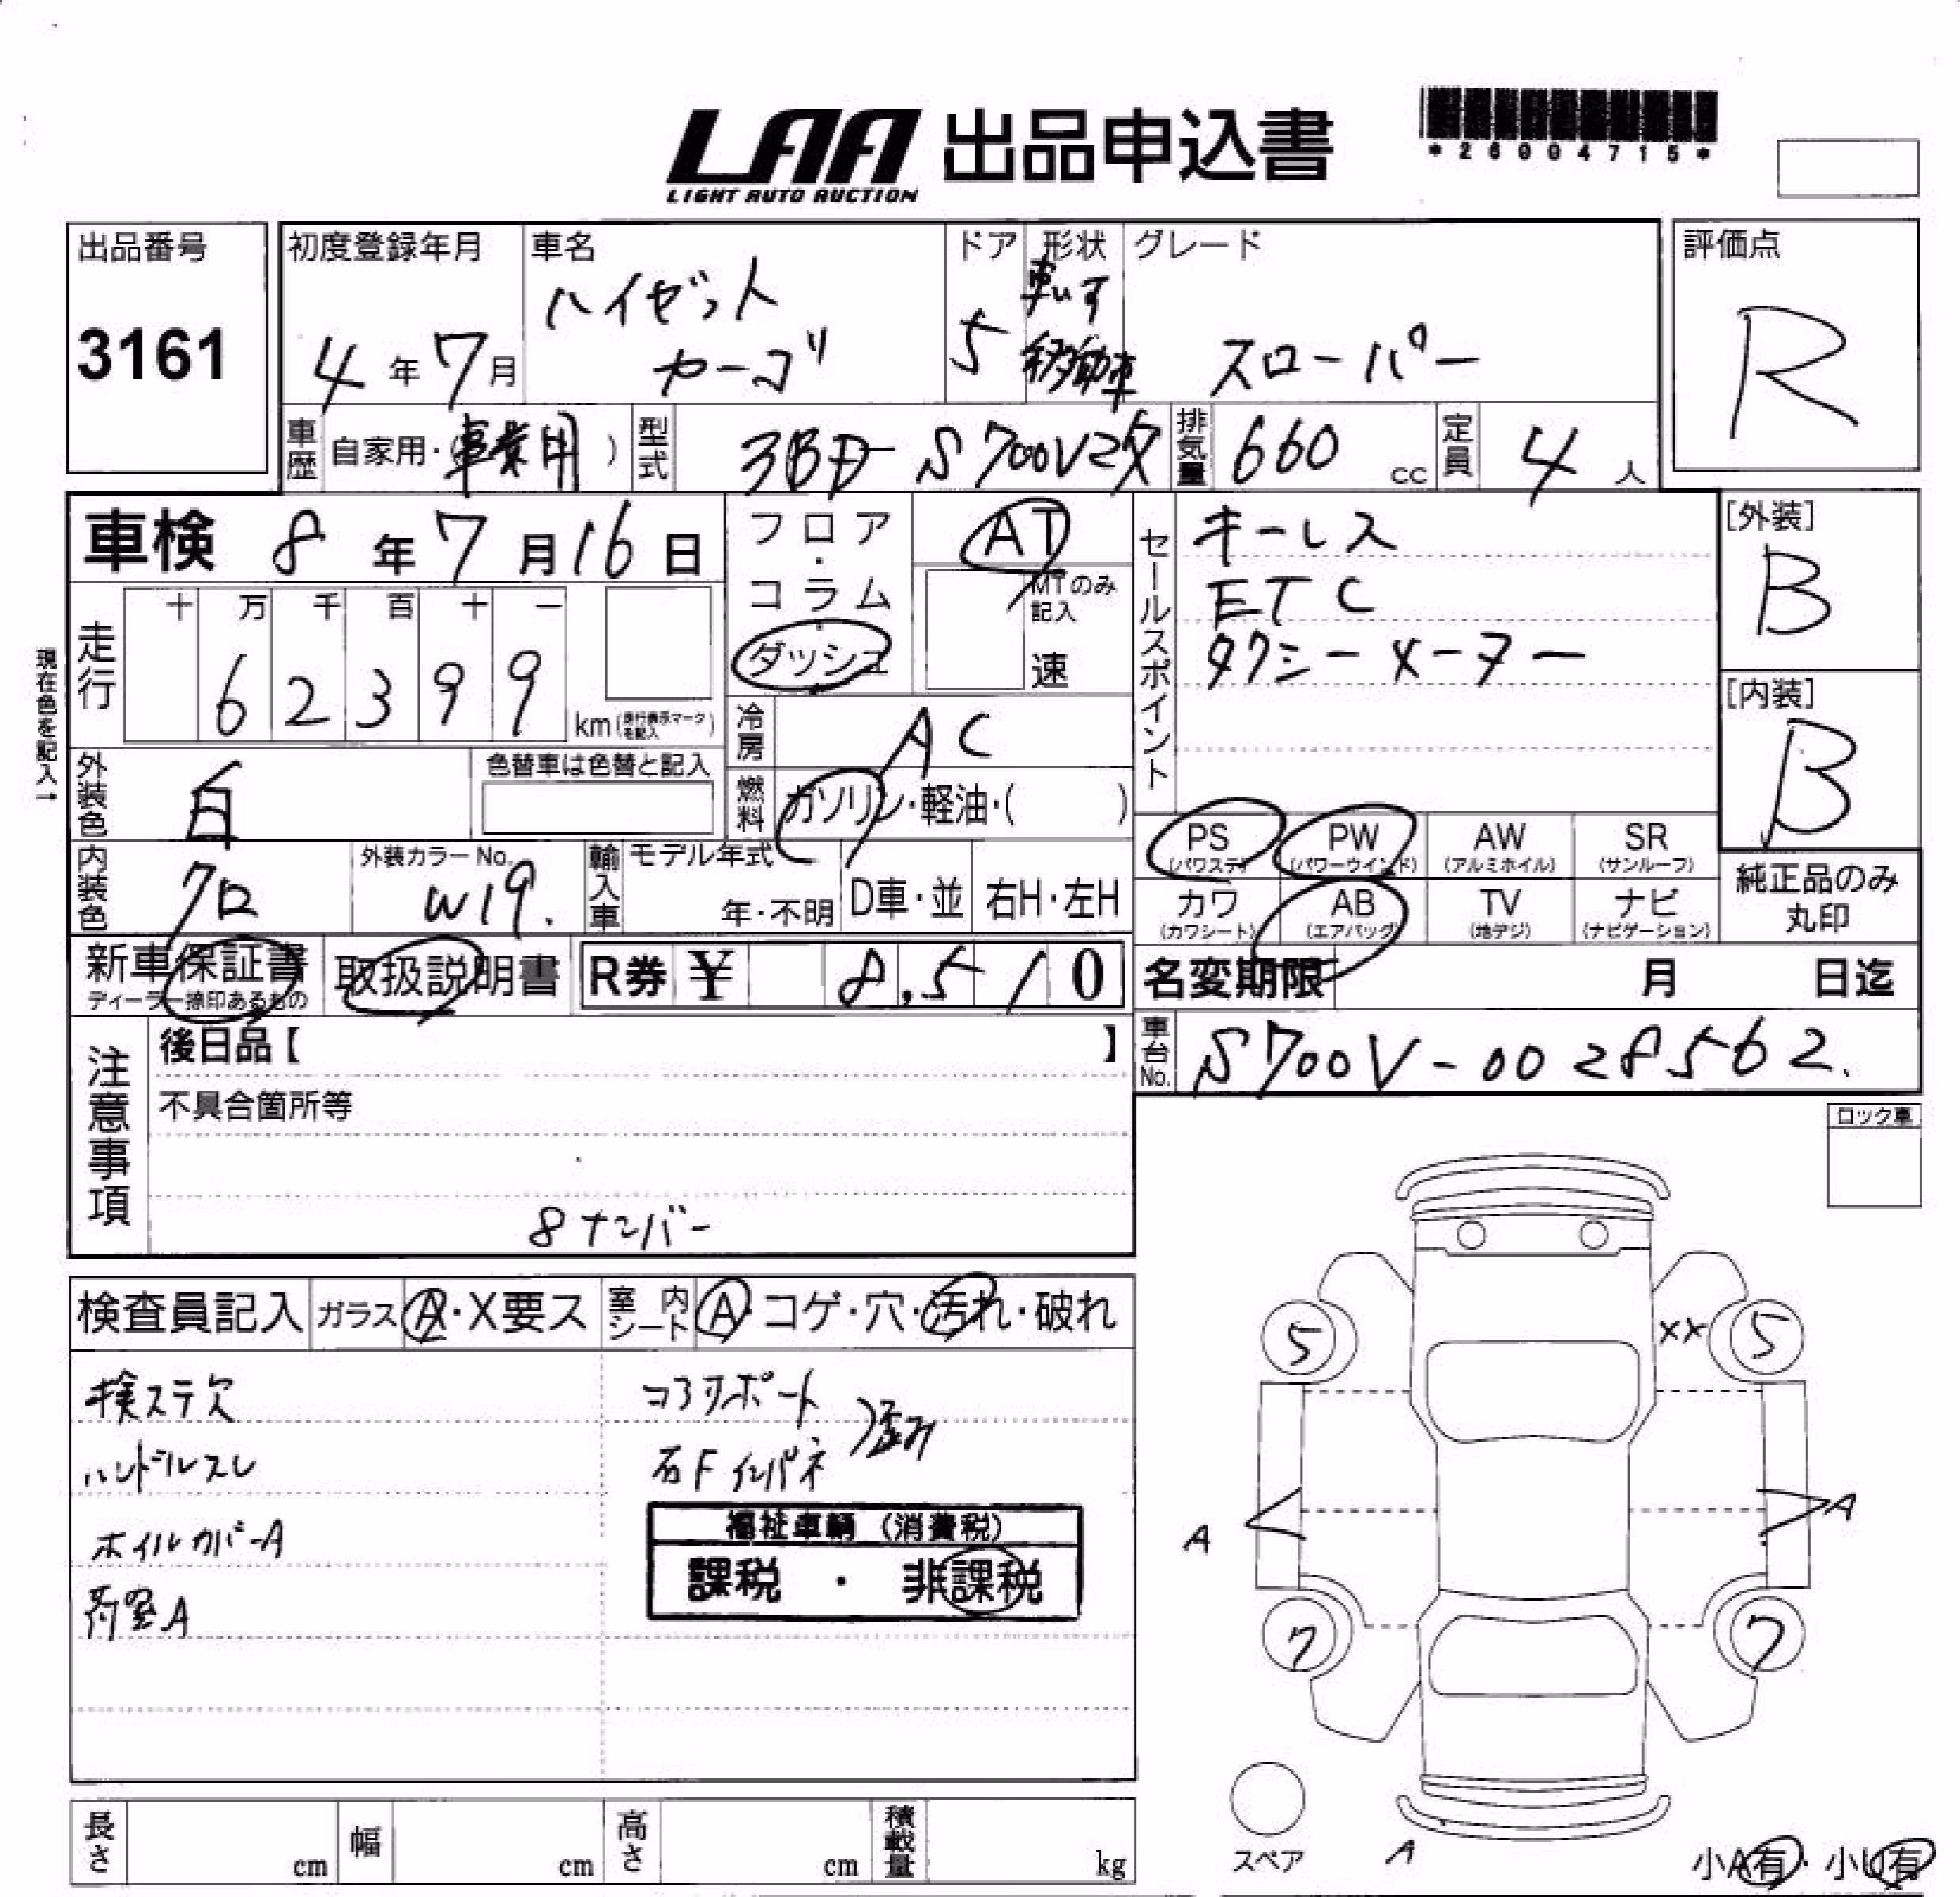 LAA 出品申込書
LIGHT AUTO AUCTION
*26004715*
出品番号
3161
初度登録年月
4年7月
車名
ハイゼット
カーゴ
ドア
5
形状
車いす
移動車
グレード
スローパー
評価点
R
車歴
自家用・(事業用)
型式
3BD-S700V改
排気量
660cc
定員
4人
車検 8年7月16日
走行
十 万 千 百 十 一
6 2 3 9 9
km(走行表示マークを記入)
現在色を記入→
外装色
白
色替車は色替と記入
内装色
クロ
外装カラーNo.
W19.
輸入車
モデル年式
年・不明
D車・並
右H・左H
フロア
・
コラム
・
ダッシュ
AT
MTのみ
記入
速
冷房
AC
燃料
ガソリン・軽油・( )
セールスポイント
キーレス
ETC
タクシーメーター
[外装]
B
[内装]
B
PS
(パワステ)
PW
(パワーウインド)
AW
(アルミホイル)
SR
(サンルーフ)
カワ
(カワシート)
AB
(エアバッグ)
TV
(地デジ)
ナビ
(ナビゲーション)
純正品のみ
丸印
新車保証書
ディーラー捺印あるもの
取扱説明書
R券 ¥ 8,510
名変期限 月 日迄
車台No.
S700V-0028562.
注意事項
後日品【 】
不具合箇所等
8ナンバー
ロック車
検査員記入
ガラス A・X要ス
室内シート A・コゲ・穴・汚れ・破れ
検ステ欠
ハンドルスレ
ホイルカバーA
荷室A
コアサポート
右Fインパネ
歪み
福祉車輌(消費税)
課税・非課税
5
XX
5
A
A
7
7
スペア
A
小A有・小U有
長さ cm
幅 cm
高さ cm
積載量 kg